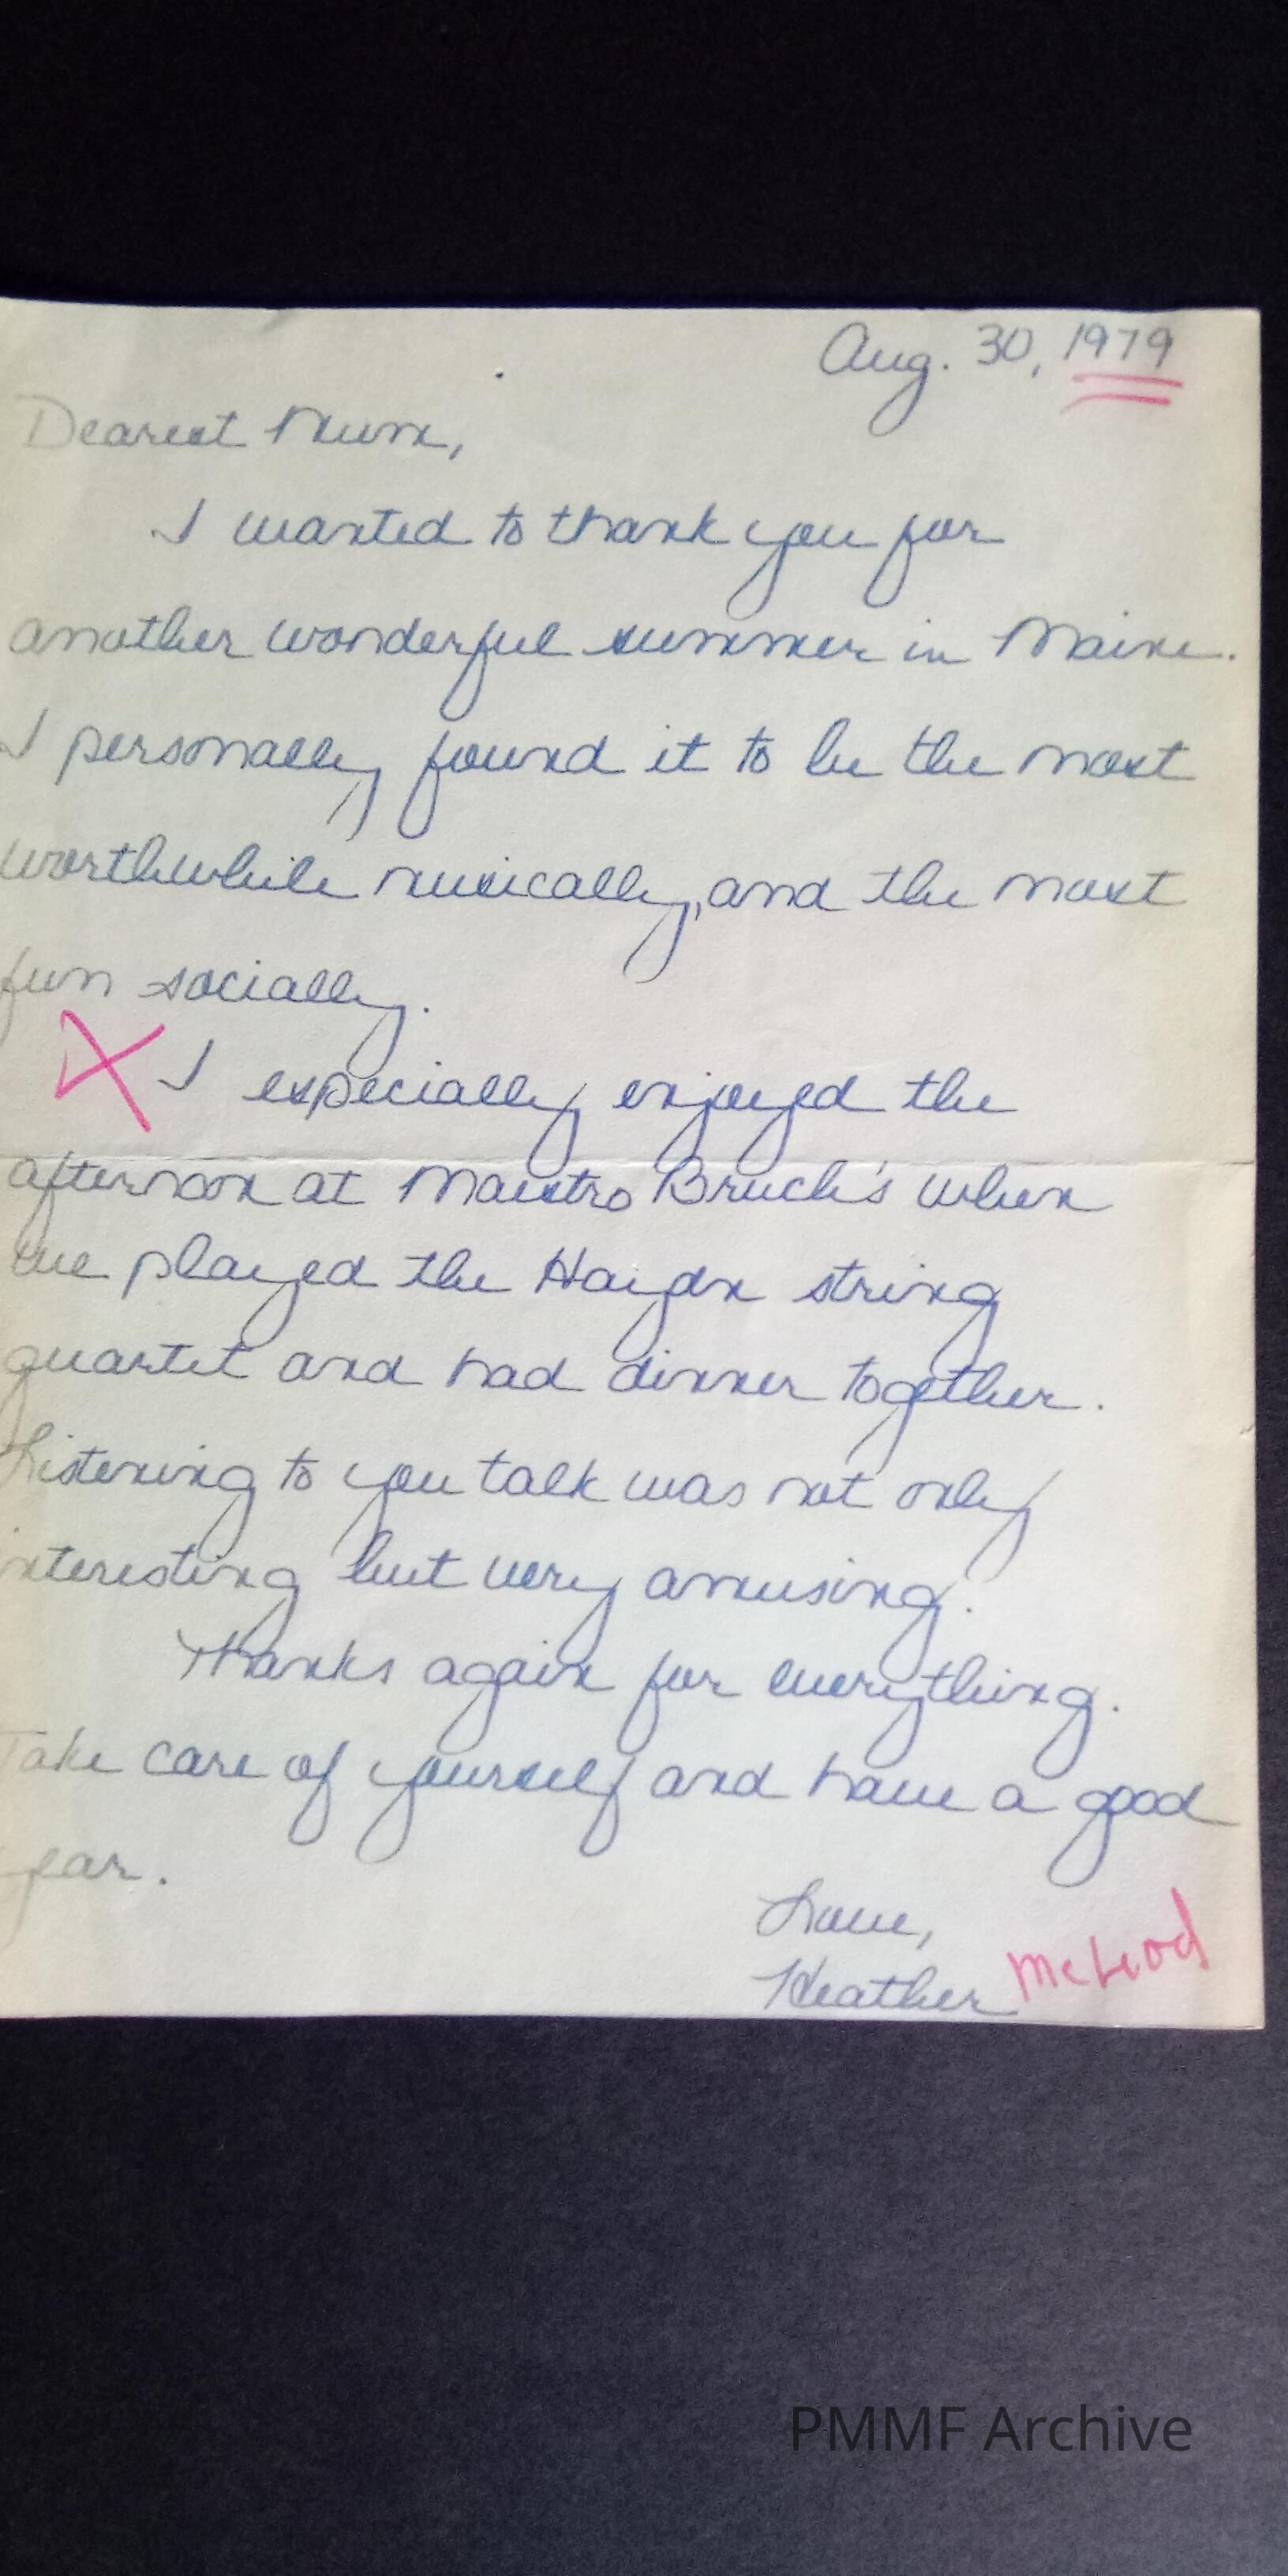 Aug. 30, 1979
Dearest Mum,
I wanted to thank you for
another wonderful summer in Maine.
I personally found it to be the most
worthwhile musically, and the most
fun socially.
X I especially enjoyed the
afternoon at Maestro Bruck's when
we played the Haydn string
quartet and had dinner together.
Listening to you talk was not only
interesting but very amusing.
Thanks again for everything.
Take care of yourself and have a good
year.
Love,
Heather McLeod
PMMF Archive